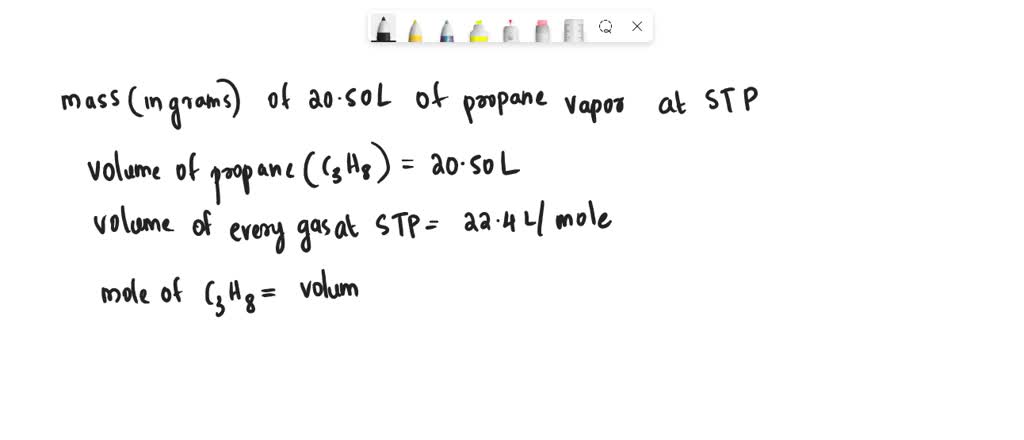 mass (in grams) of 20.50L of propane vapor at STP
volume of propane (C₃H₈) = 20.50L
volume of every gas at STP = 22.4 L/mole
mole of C₃H₈ = volum